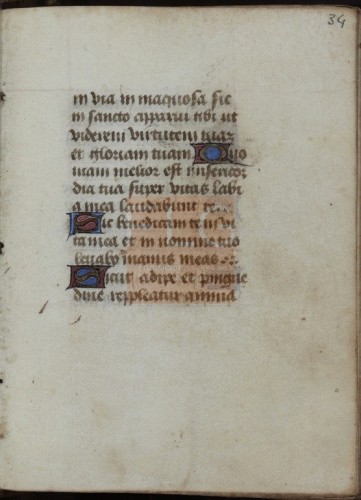 34
in via in inaquosa sic
in sancto apparui tibi ut
viderem virtutem tuaz
et gloriam tuam. Quo
niam melior est misericor
dia tua super vitas labi
a mea laudabunt te.
Sic benedicam te in vi
ta mea et in nomine tuo
levabo manus meas
Sicut adipe et pingue
dine repleatur anima